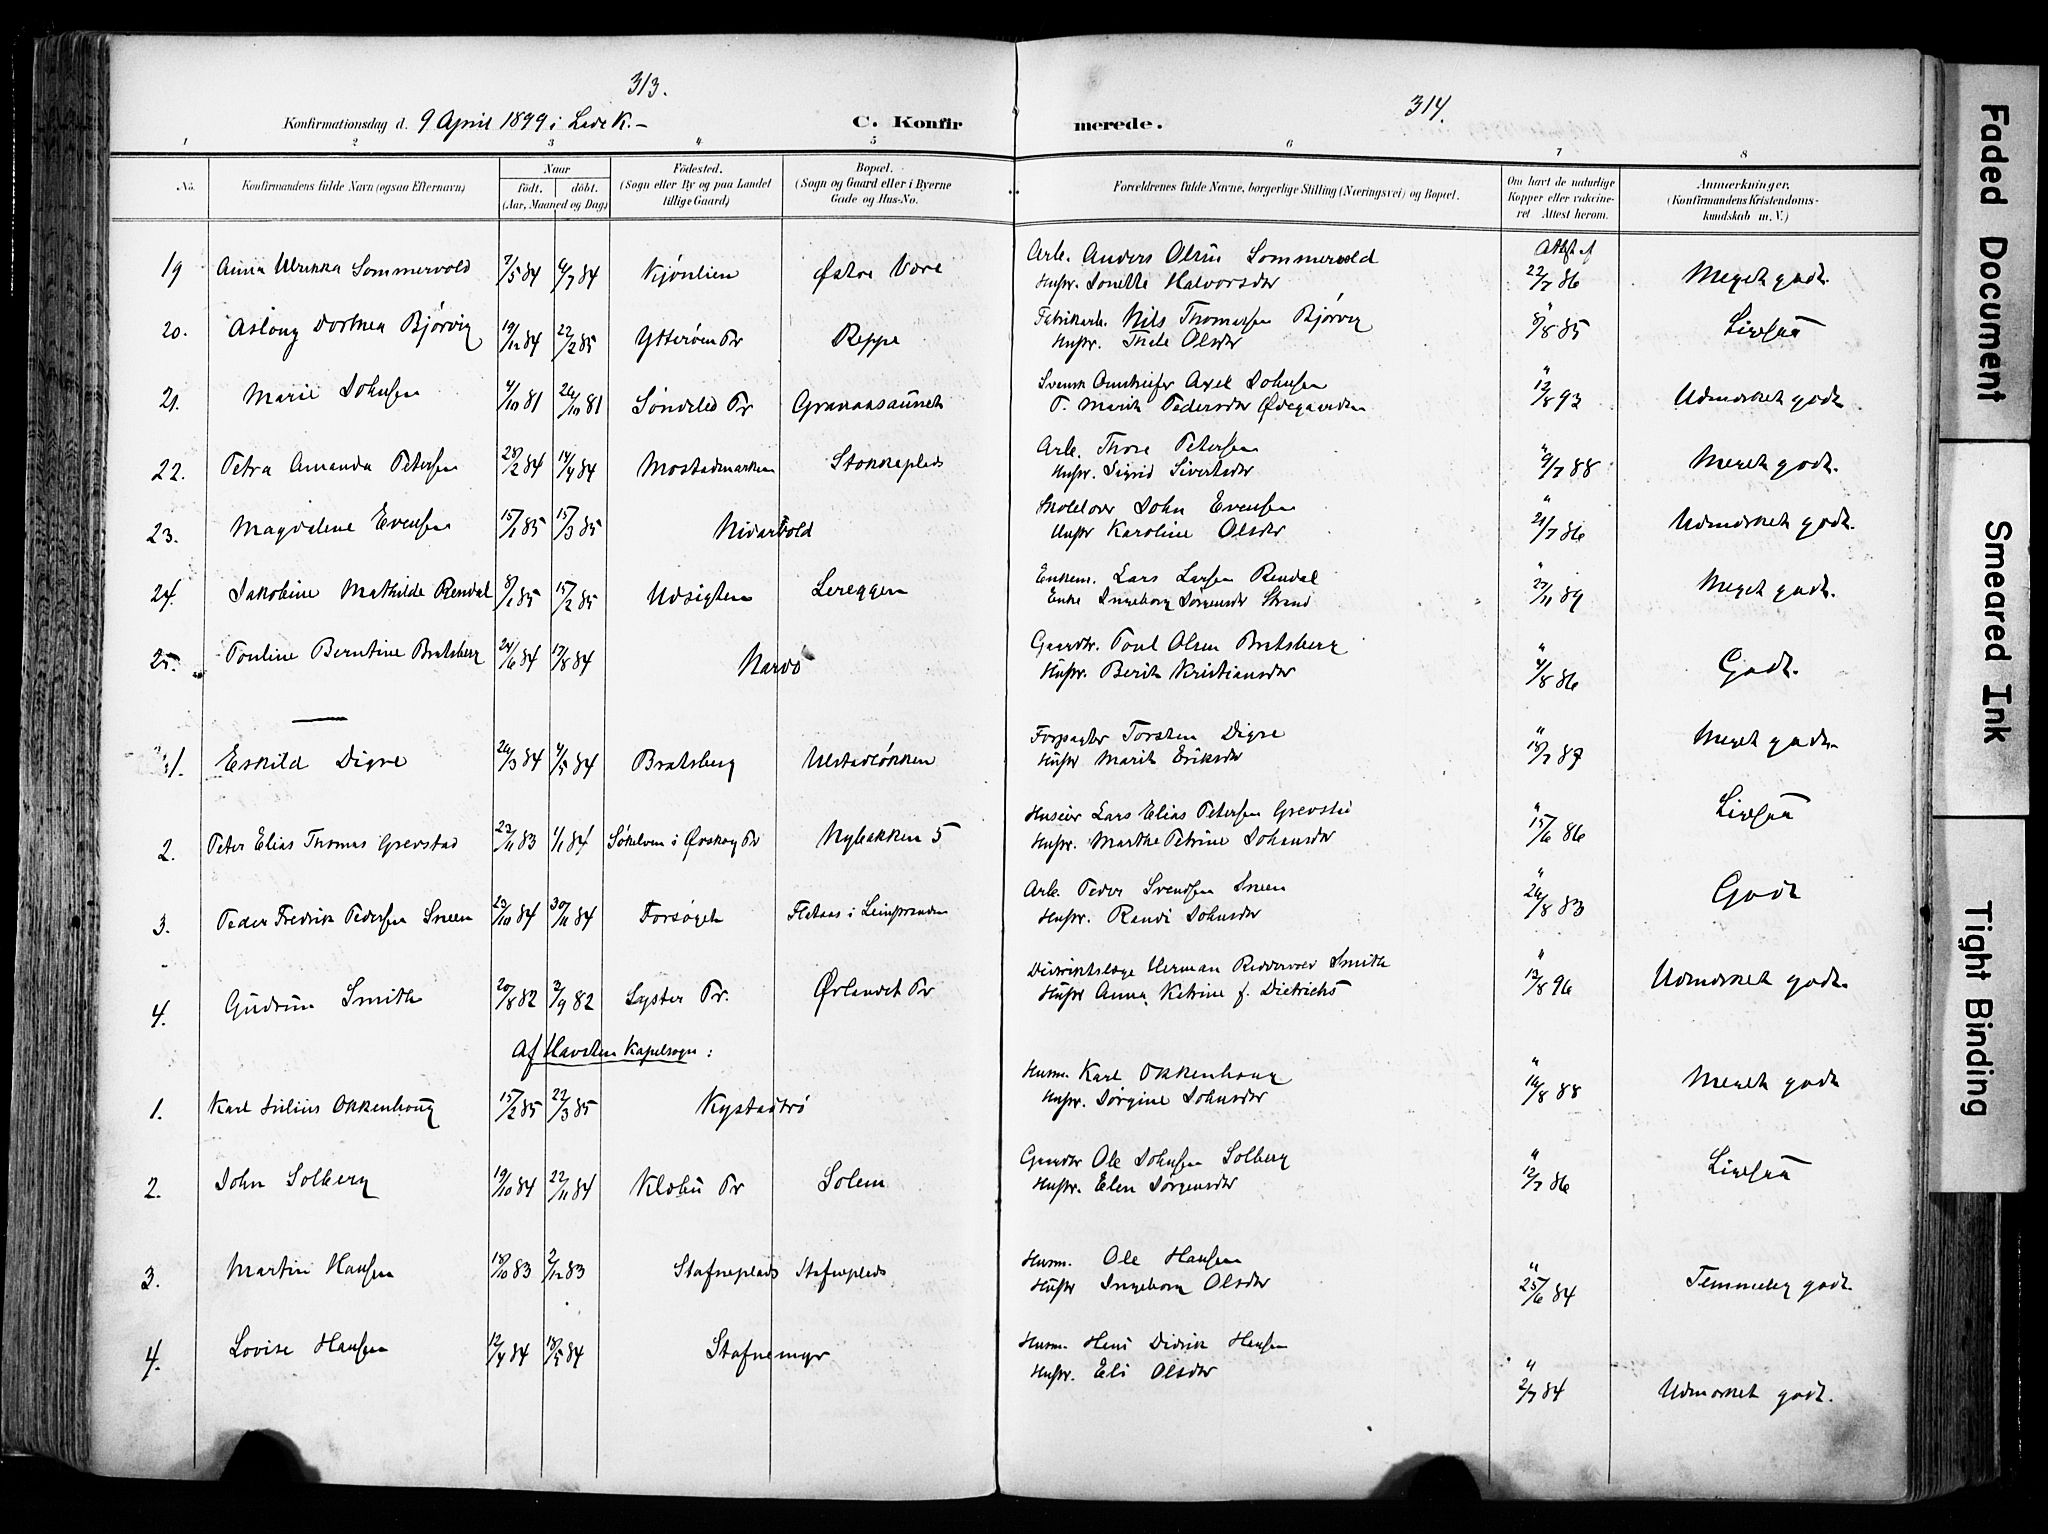 313.
314.
Konfirmationsdag d. 9 April 1899 i Lade K.-
C. Konfirmerede.
1 2 3 4 5 6 7 8
No.
Konfirmandens fulde Navn (ogsaa Efternavn)
Naar
födt.
döbt.
(Aar, Maaned og Dag)
Födested.
(Sogn eller By og paa Landet
tillige Gaard)
Bopæl.
(Sogn og Gaard eller i Byerne
Gade og Hus-No.
Forældrenes fulde Navne, borgerlige Stilling (Næringsvei) og Bopæl.
Om havt de naturlige
Kopper eller vakcine-
ret Attest herom.
Anmærkninger.
(Konfirmandens Kristendoms-
kundskab m. V.)
Arb. Anders Olsen Sommervold Attst af
19 Anna Ulrikka Sommervold 7/5 84 6/7 84 Kjønlien Østre Være Hustr. Jonette Halvorsdtr 22/7 86 Meget godt.
20. Aslaug Dorthea Bjørvig 19/12 84 22/2 85 Ytterøen Pr Reppe Fabrikarb. Nils Thomassen Bjørvig " 8/8 85 Livsaa
Hustr. Thale Olsdtr
21. Marie Johnsen 4/10 81 26/10 81 Søndeled Pr Granaasaunet Svensk Axel Johnsen " 12/8 93 Udmærket godt
F. Marit Pedersdtr Ødegaarden
22. Petra Amanda Petersen 28/2 84 14/4 84 Mostadmarken Stokkeplads Arb. Thore Petersen " 9/7 88 Meget godt.
Hustr. Sigrid Sivertsdtr
23. Magdalene Evensen 15/1 85 15/3 85 Nidarvold John Evensen " 21/7 86 Udmærket godt.
Hustr Karoline Olsdtr
24. Jakobine Mathilde Rendal 8/1 85 15/2 85 Udsigten Lereggen Enkem. Lars Larsen Rendal " 27/11 89 Meget godt.
Enke Ingeborg Jørgensdtr Strand
25. Pouline Berntine Bratsberg 24/6 84 17/8 84 Nardo Gaardbr. Poul Olsen Bratsberg " 4/8 86 Godt.
Hustr. Berit Kristiansdtr
1. Eskild Digre 26/3 84 4/5 84 Bratsberg Ulstadløkken Forpagter Torsten Digre " 14/7 87 Meget godt.
Hustr Marit Eriksdtr
2. Peter Elias Thomas Grevstad 22/11 83 1/1 84 Søkelven i Ørskog Pr Nybakken 5 Huseier Lars Elias Petersen Grevstad " 15/6 86 Livsaa
Hustr. Marthe Petrine Johansdtr
3. Peder Fredrik Pedersen Sneen 23/10 84 30/11 84 Forsøget Flataas i Leinstranden Arb. Peder Svendsen Sneen " 26/8 83 Godt
Hustr. Randi Johnsdtr
4. Gudrun Smith 20/8 82 3/9 82 Lyster Pr. Ørlandet Pr Distriktslæge Herman Reddervold Smith " 12/8 96 Udmærket godt.
Hustr Anna Katrine f. Dietrichs
Af Havstein Kapelsogn:
1. Karl Julius Okkenhoug 15/2 85 22/3 85 Kystadtrø Husm. Karl Okkenhoug " 16/8 88 Meget godt
Hustr. Jørgine Johnsdtr
2. John Solberg 19/10 84 22/11 84 Klæbu Pr Solem Gaardbr Ole Johnsen Solberg " 12/7 86 Livsaa
Hustr. Elen Jørgensdtr
3. Martin Hansen 18/10 83 2/12 83 Stafneplads Stafneplads Husm. Ole Hansen " 25/6 84 Temmelig godt.
Hustr Ingeborg Olsdtr
4. Lovise Hansen 12/4 84 18/5 84 Stafnemyr Husm. Hans Didrik Hansen " 2/7 84 Udmærket godt.
Hustr. Eli Olsdtr
Faded Document
Smeared Ink
Tight Binding